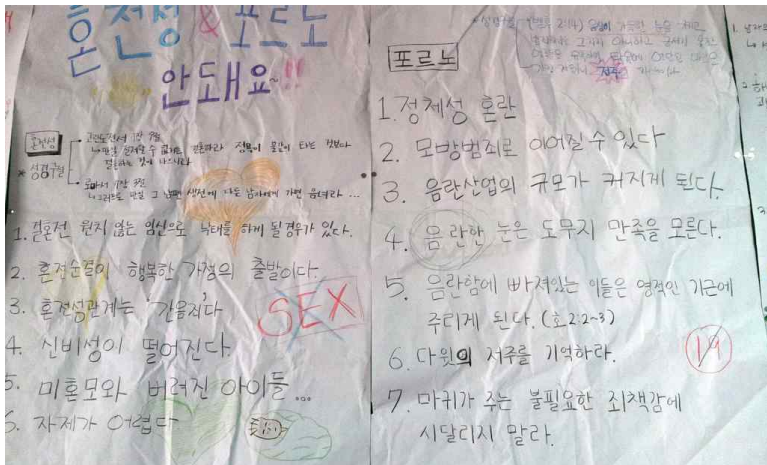 혼전성 & 포르노
안돼요~!!
혼전성
* 성경구절
고린도전서 7장 9절
로마서 7장 3절
그러므로 만일 그 남편 생전에 다른 남자에게 가면 음녀라 ...
1. 결혼전 원치 않는 임신으로 낙태를 하게 될 경우가 있다.
2. 혼전순결이 행복한 가정의 출발이다.
3. 혼전성관계는 '간음죄'다
SEX
4. 신비성이 떨어진다.
5. 미혼모와 버려진 아이들...
6. 자제가 어렵다
포르노
1. 정체성 혼란
2. 모방범죄로 이어질 수 있다
3. 음란산업의 규모가 커지게 된다.
4. 음란한 눈은 도무지 만족을 모른다.
5. 음란함에 빠져있는 이들은 영적인 기근에
주리게 된다. (호 2:2~3)
6. 다윗의 저주를 기억하라.
19
7. 마귀가 주는 불필요한 죄책감에
시달리지 말라.